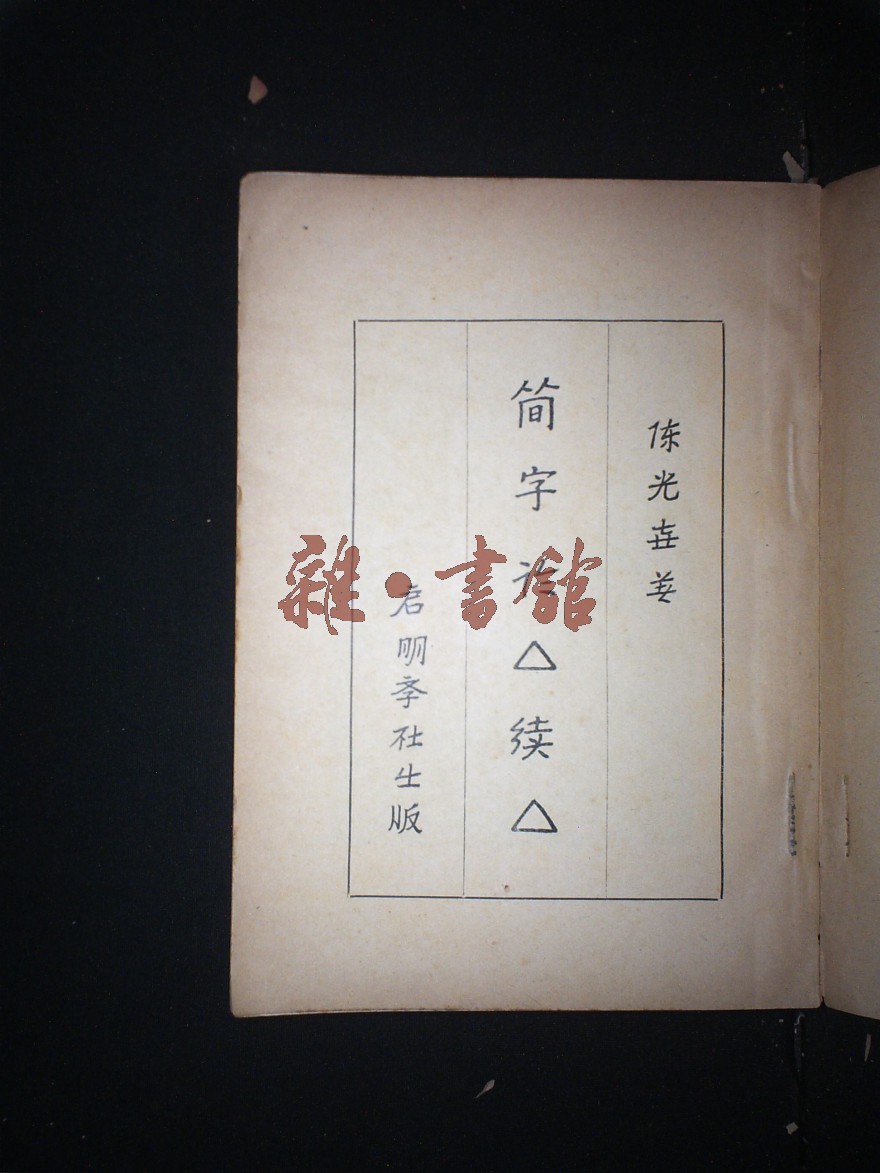 陈光垚著
简字论△续△
启明斈社出版
雜·書館